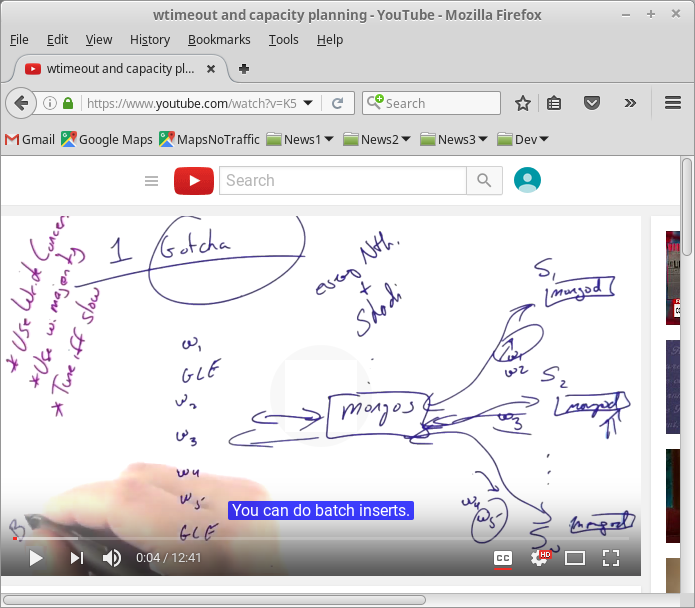 wtimeout and capacity planning - YouTube - Mozilla Firefox
File Edit View History Bookmarks Tools Help
wtimeout and capacity pl...
https://www.youtube.com/watch?v=K5
Search
Gmail Google Maps MapsNoTraffic News1 News2 News3 Dev
Search
1 Gotcha
* Use Write Concern
* Use w: majority
* Tune iff slow
every Nth
+
S1
mongod
w1
GLE
w2
w3
w4
w5
GLE
mongos
w1
w2
S2
mongod
w3
w4
w5
SN
mongod
B
You can do batch inserts.
0:04 / 12:41
CC
HD